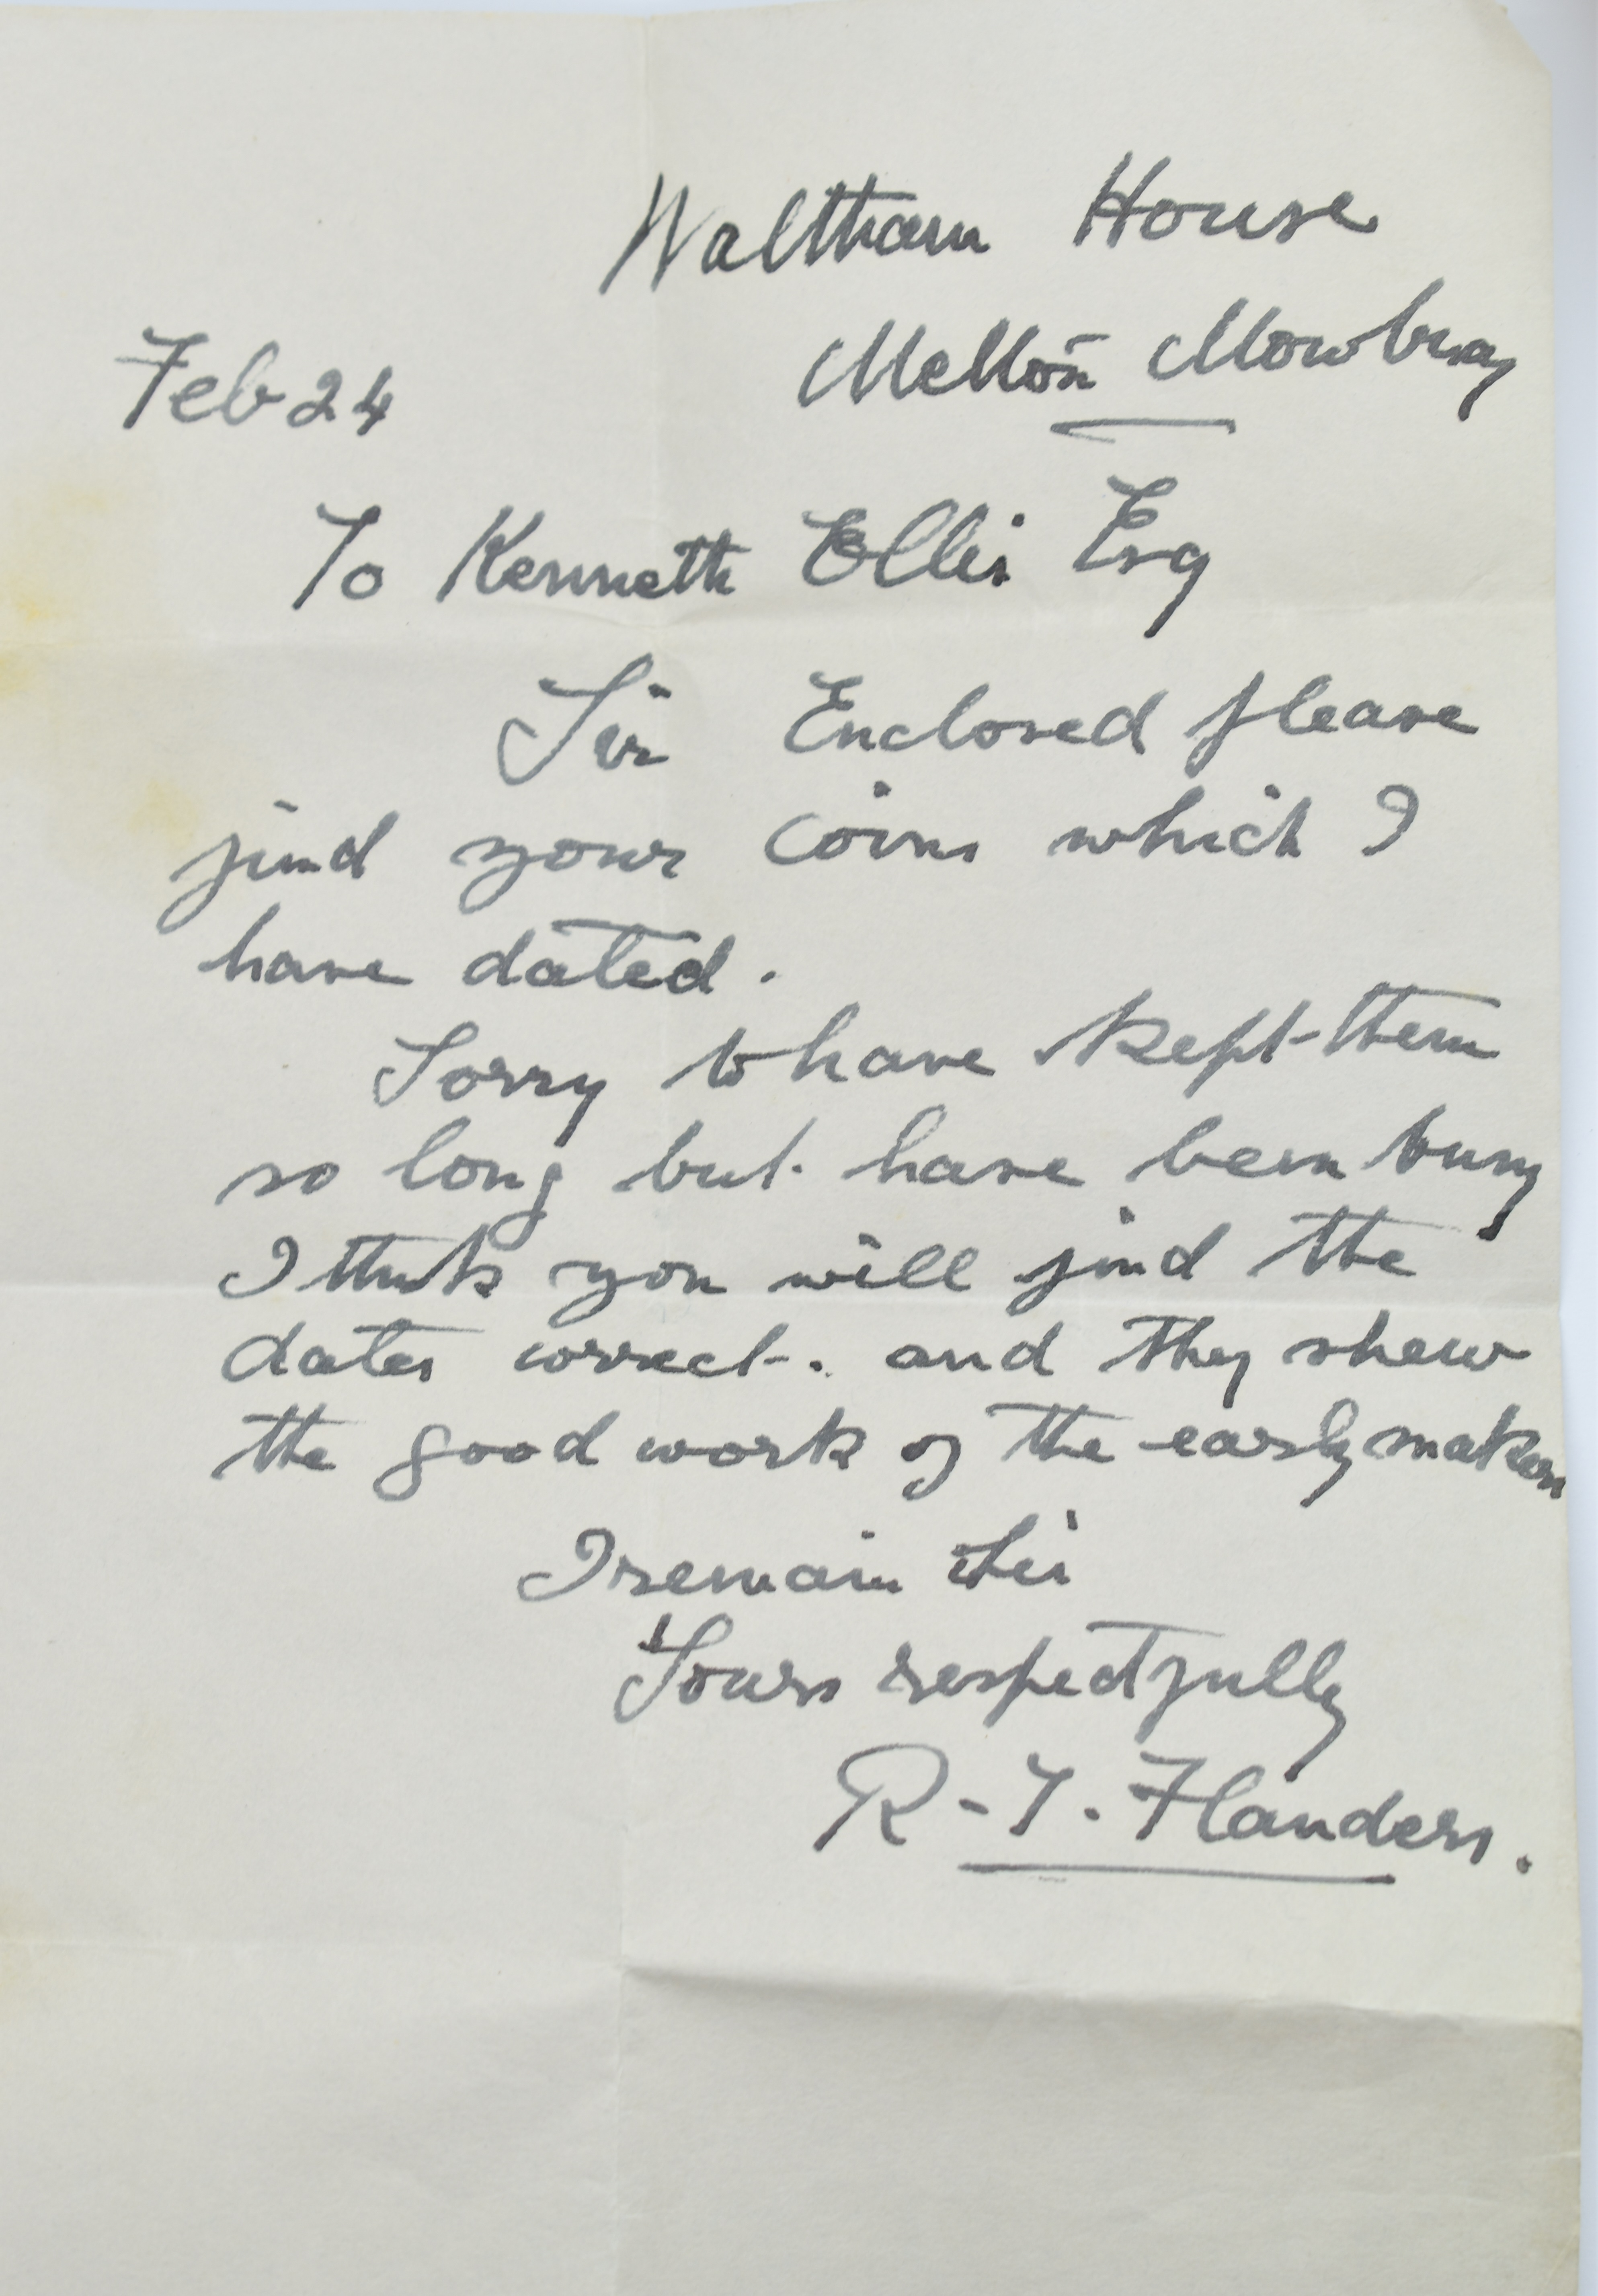 Waltham House
Melton Mowbray
Feb 24
To Kenneth Ellis Esq
Sir Enclosed please
find your coins which I
have dated.
Sorry to have kept them
so long but have been busy
I think you will find the
dates correct. and they shew
the good work of the early makers
I remain Sir
Yours respectfully
R. T. Flanders.